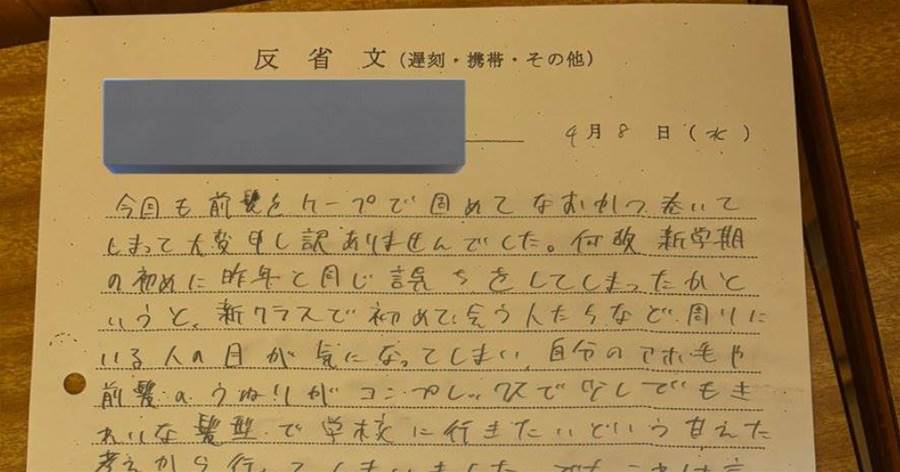 反省文（遅刻・携帯・その他）
4月8日（水）
今回も前髪をケープで固めてなおかつ巻いて
しまって大変申し訳ありませんでした。何故新学期
の初めに昨年と同じ誤ちをしてしまったかと
いうと、新クラスで初めて会う人たちなど周りに
いる人の目が気になってしまい、自分のアホ毛や
前髪のうねりがコンプレックスで少しでもき
れいな髪型で学校に行きたいという甘えた
考えから行ってしまいました。でもこれは言